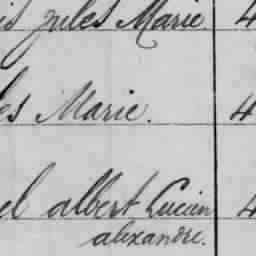 is jules Marie. 4
es Marie. 4
el albert Lucien 4
alexandre.